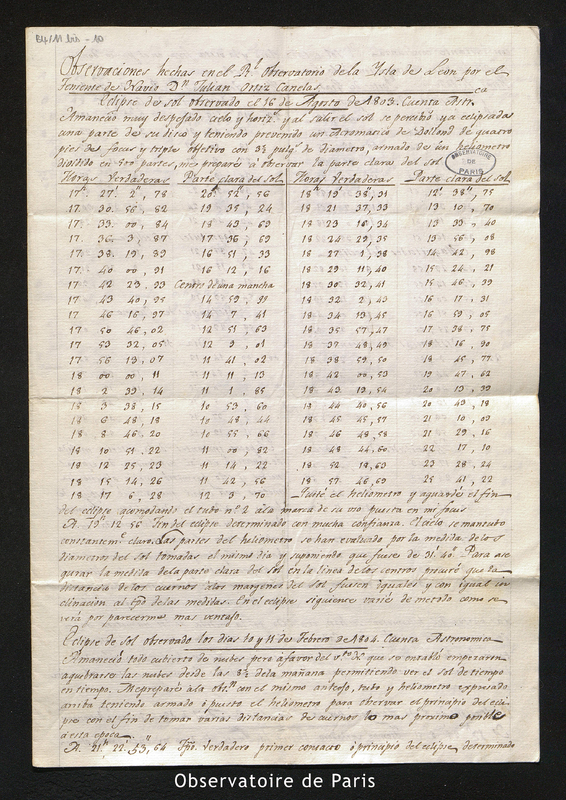 B4/11 bis - 10
Observaciones hechas en el Rl. Observatorio de la Ysla de Leon por el
Teniente de Navio Dn. Julian Ortiz Canelas
Eclipse de sol observado el 16 de Agosto de 1803. Cuenta Astr.
Amaneció muy despejado cielo y horizte. y al salir el sol se percibió ya eclipsada
una parte de su disco y teniendo prevenido un Acromatico de Dollond de quatro
pies de focus y triple objetivo con 3½ pulgs. de diametro, armado de un heliometro
dividido en 500 partes, me preparé á observar la parte clara del sol
OBSERVATOIRE DE PARIS
Horas Verdaderas Parte clara del sol Horas Verdaderas Parte clara del sol
17h 27' 2", 78 20' 52", 56 18h 19' 38", 31 12' 38", 75
17 30 56, 82 19 35, 24 18 21 37, 33 13 10, 70
17 33 00, 84 18 43, 69 18 23 16, 34 13 33, 40
17 36 3, 87 17 36, 69 18 24 29, 35 13 56, 08
17 38 19, 89 16 51, 33 18 27 1, 38 14 42, 98
17 40 00, 91 16 12, 16 18 29 11, 40 15 24, 21
17 42 23, 93 Centro de una mancha 18 30 32, 41 15 46, 39
17 43 40, 95 14 59, 35 18 32 2, 43 16 17, 31
17 46 16, 97 14 7, 41 18 34 13, 45 16 59, 05
17 50 46, 02 12 51, 63 18 35 57, 47 17 38, 75
17 53 32, 05 12 3, 01 18 37 48, 49 18 16, 90
17 56 13, 07 11 41, 02 18 38 59, 50 18 45, 77
18 00 00, 11 11 11, 13 18 42 00, 53 19 47, 62
18 2 39, 14 11 1, 85 18 43 19, 54 20 13, 39
18 3 38, 15 10 53, 60 18 44 40, 56 20 43, 18
18 6 48, 18 10 48, 44 18 45 45, 57 21 10, 03
18 8 46, 20 10 55, 66 18 46 48, 58 21 29, 16
18 10 51, 22 11 00, 82 18 48 44, 60 22 17, 10
18 12 25, 23 11 14, 22 18 52 18, 63 23 28, 24
18 15 14, 26 11 42, 56 18 57 46, 69 25 41, 22
18 17 6, 28 12 3, 70 Quité el heliometro y aguardé el fin
del eclipse acomodando el tubo nº. 2 á la marca de su uso puesta en mi focus
A. 19h 12' 56" fin del eclipse determinado con mucha confianza. El cielo se mantubo
constantemte. claro. Las partes del heliometro se han evaluado por la medida de los
diametros del sol tomadas el mismo dia y suponiendo que fuese de 31' 40". Para ase
gurar la medida de la parte clara del sol en la linea de los centros procuré que la
distancia de los cuernos á los margenes del sol fuesen iguales y con igual in
clinacion al de las medidas. En el eclipse siguiente varié de metodo como se
verá por parecerme mas ventajo.
Eclipse de sol observado los dias 10 y 11 de Febrero de 1804. Cuenta Astronomica
Amaneció todo cubierto de nubes pero á favor del que se entabló empezaron
agubrarse las nubes desde las 8½ de la mañana permitiendo ver el sol de tiempo
en tiempo. Me preparé á la obson. con el mismo anteojo, tubo y heliometro expresado
arriba teniendo armado ó puesto el heliometro para observar el principio del eclip
se con el fin de tomar varias distancias de cuernos lo mas proximo posible
á esta epoca
A. 21h, 22', 53", 64 Tpo. verdadero primer contacto ó principio del eclipse, determinado
Observatoire de Paris